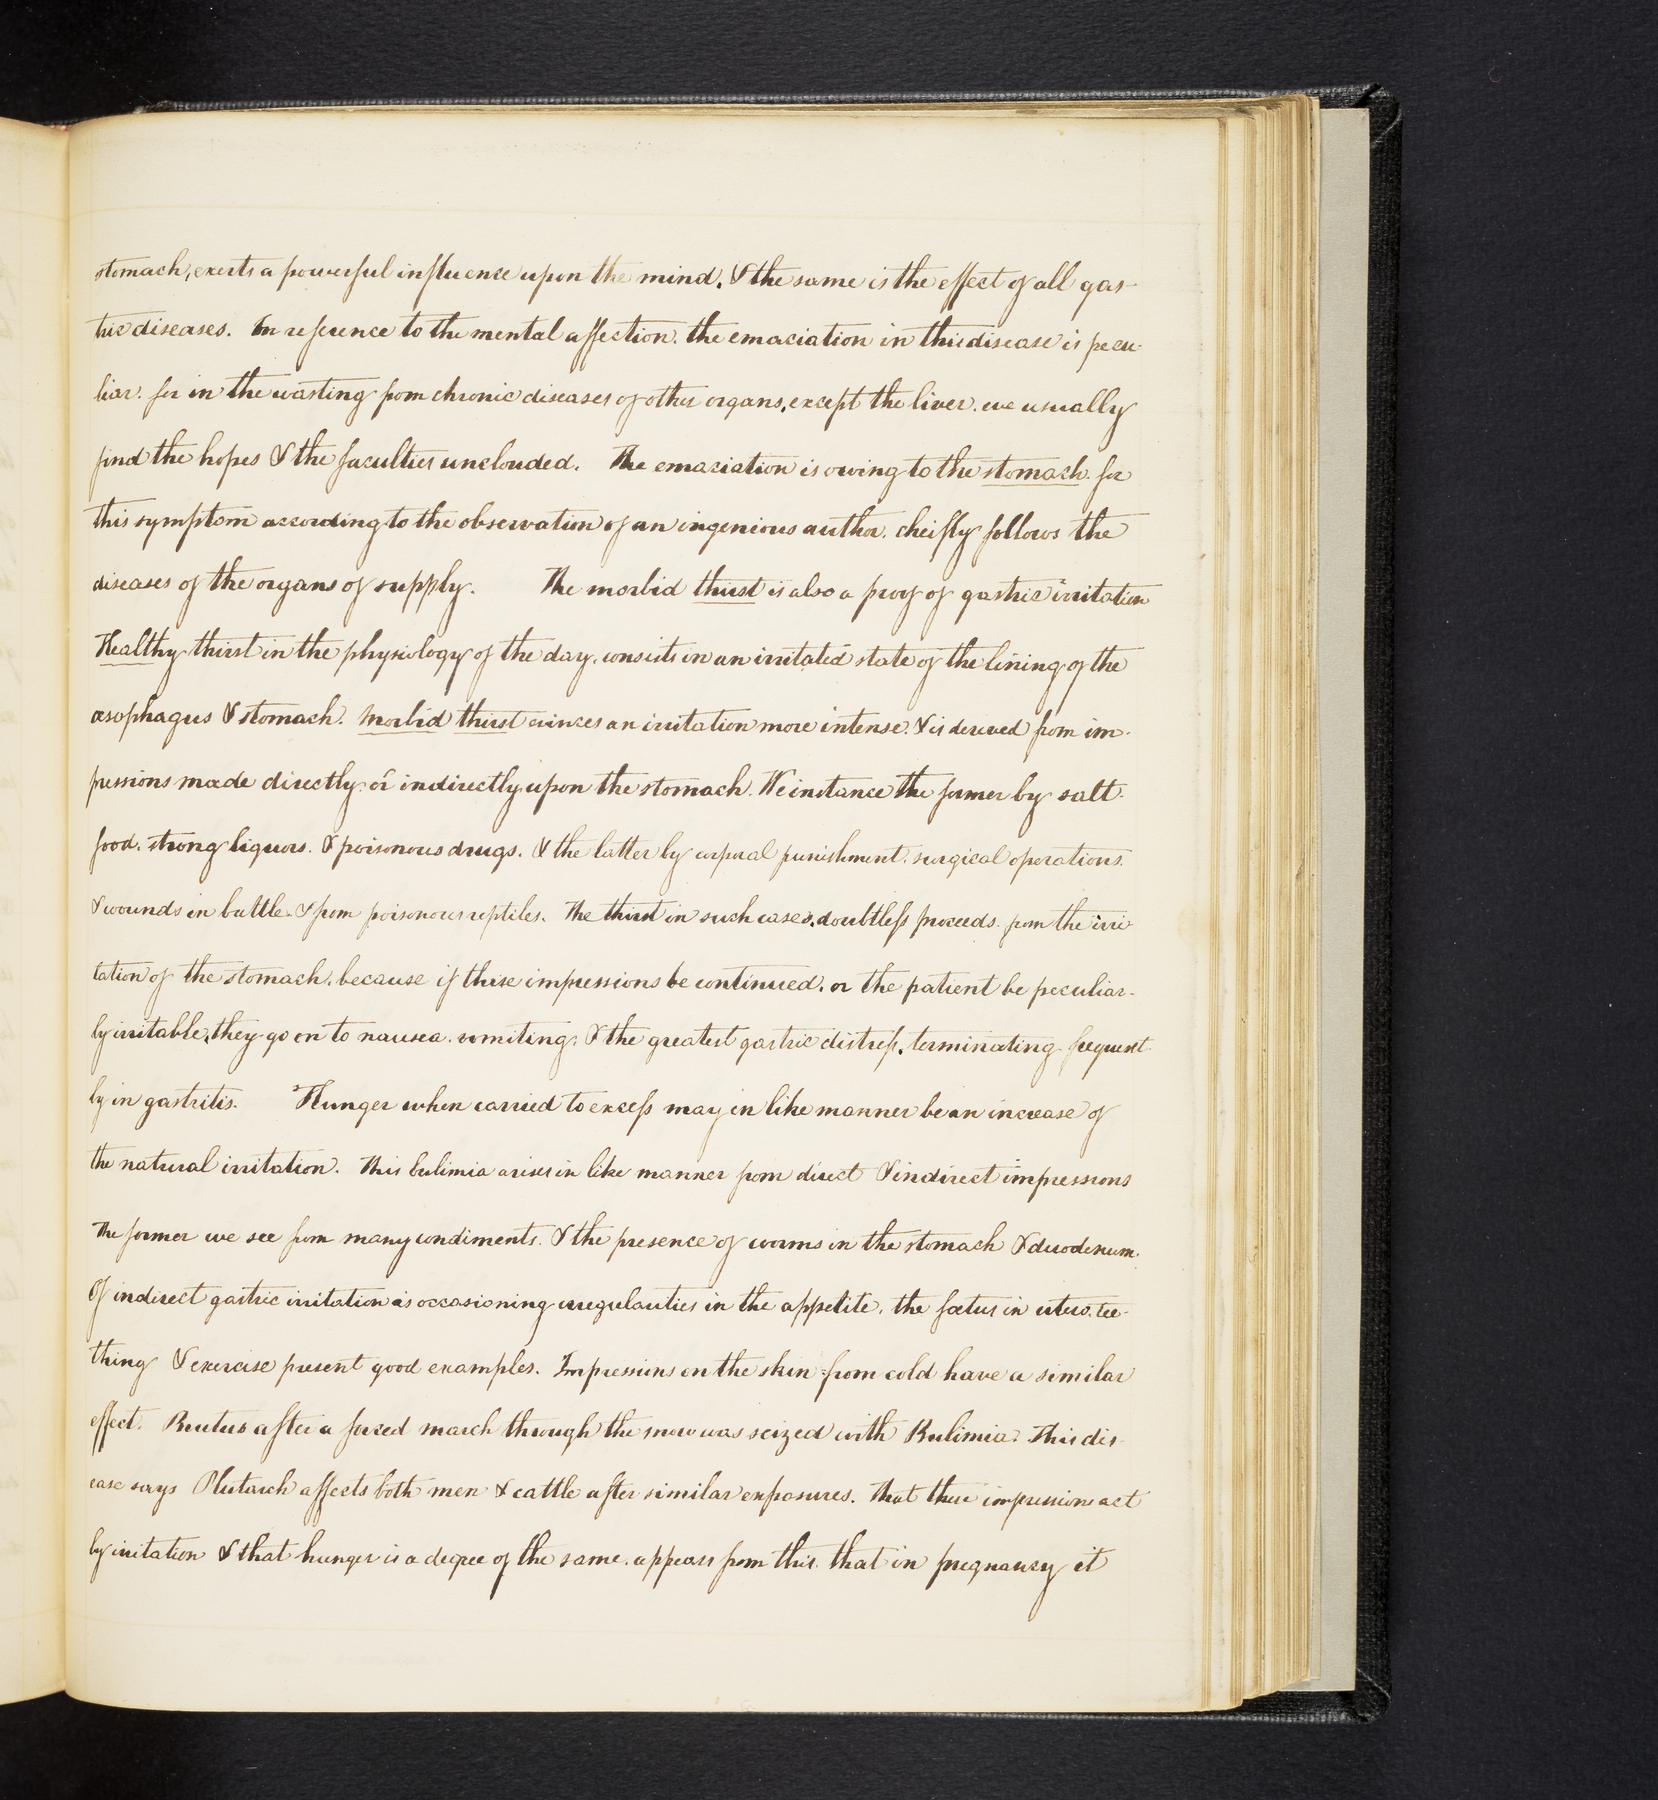 stomach, exerts a powerful influence upon the mind, & the same is the effect of all gas-
tric diseases. In reference to the mental affection, the emaciation in this disease is pecu-
liar, for in the wasting from chronic diseases of other organs, except the liver, we usually
find the hopes & the faculties unclouded. The emaciation is owing to the stomach, for
this symptom according to the observation of an ingenious author, cheifly follows the
diseases of the organs of supply. The morbid thirst is also a proof of gastric irritation
Healthy thirst in the physiology of the day, consists in an irritated state of the lining of the
œsophagus & stomach. Morbid thirst evinces an irritation more intense, & is derived from im-
pressions made directly or indirectly upon the stomach. We instance the former by salt
food, strong liquors, & poisonous drugs, & the latter by corporal punishment, surgical operations,
& wounds in battle, & from poisonous reptiles. The thirst in such cases, doubtless proceeds from the irri
tation of the stomach, because if these impressions be continued, or the patient be peculiar-
ly irritable, they go on to nausea, vomiting, & the greatest gastric distress, terminating frequent
ly in gastritis. Hunger when carried to excess may in like manner be an increase of
the natural irritation. This bulimia arises in like manner from direct & indirect impressions
The former we see from many condiments, & the presence of worms in the stomach & duodenum.
Of indirect gastric irritation as occasioning irregularities in the appetite, the fœtus in utero, tee-
thing & exercise present good examples. Impressions on the skin from cold have a similar
effect. Brutus after a forced march through the snow was seized with Bulimia. This dis-
ease says Plutarch affects both men & cattle after similar exposures. That these impressions act
by irritation & that hunger is a degree of the same, appears from this, that in pregnancy it